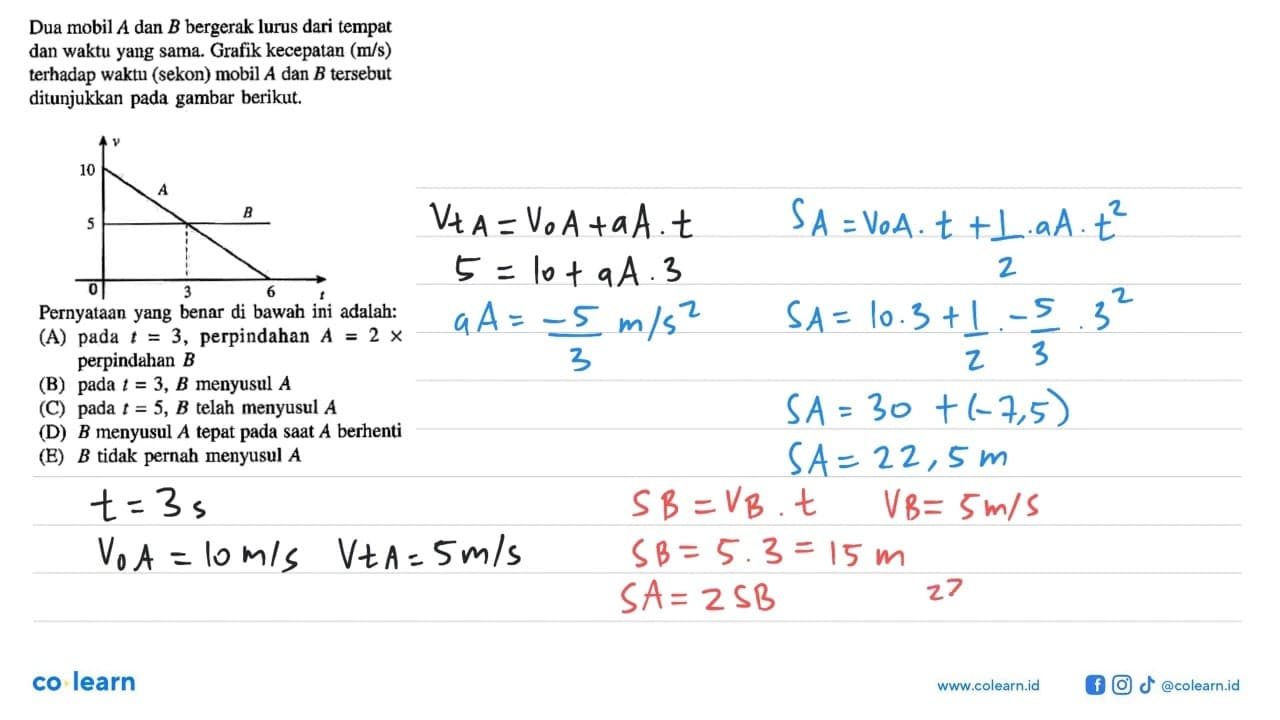 Dua mobil A dan B bergerak lurus dari tempat
dan waktu yang sama. Grafik kecepatan (m/s)
terhadap waktu (sekon) mobil A dan B tersebut
ditunjukkan pada gambar berikut.
v
10
A
B
5
0 3 6 t
Pernyataan yang benar di bawah ini adalah:
(A) pada t = 3, perpindahan A = 2 ×
perpindahan B
(B) pada t = 3, B menyusul A
(C) pada t = 5, B telah menyusul A
(D) B menyusul A tepat pada saat A berhenti
(E) B tidak pernah menyusul A
t = 3 s
V₀A = 10 m/s VtA = 5 m/s
VtA = V₀A + aA . t
5 = 10 + aA . 3
aA = -5/3 m/s²
SA = V₀A . t + 1/2 . aA . t²
SA = 10 . 3 + 1/2 . -5/3 . 3²
SA = 30 + (-7,5)
SA = 22,5 m
SB = VB . t VB = 5 m/s
SB = 5 . 3 = 15 m
SA = 2 SB 27
co learn
www.colearn.id @colearn.id